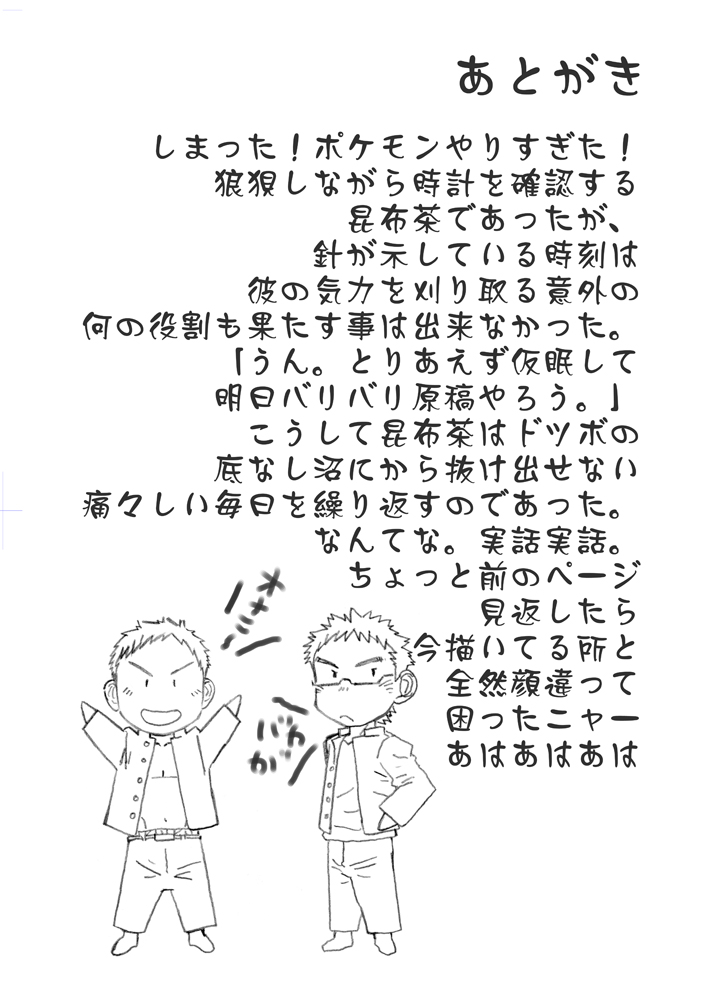 あとがき
しまった！ポケモンやりすぎた！
狼狽しながら時計を確認する
昆布茶であったが、
針が示している時刻は
彼の気力を刈り取る意外の
何の役割も果たす事は出来なかった。
「うん。とりあえず仮眠して
明日バリバリ原稿やろう。」
こうして昆布茶はドツボの
底なし沼にから抜け出せない
痛々しい毎日を繰り返すのであった。
なんてな。実話実話。
ちょっと前のページ
見返したら
今描いてる所と
全然顔違って
困ったニャー
あはあはあは
オメミー
バカが